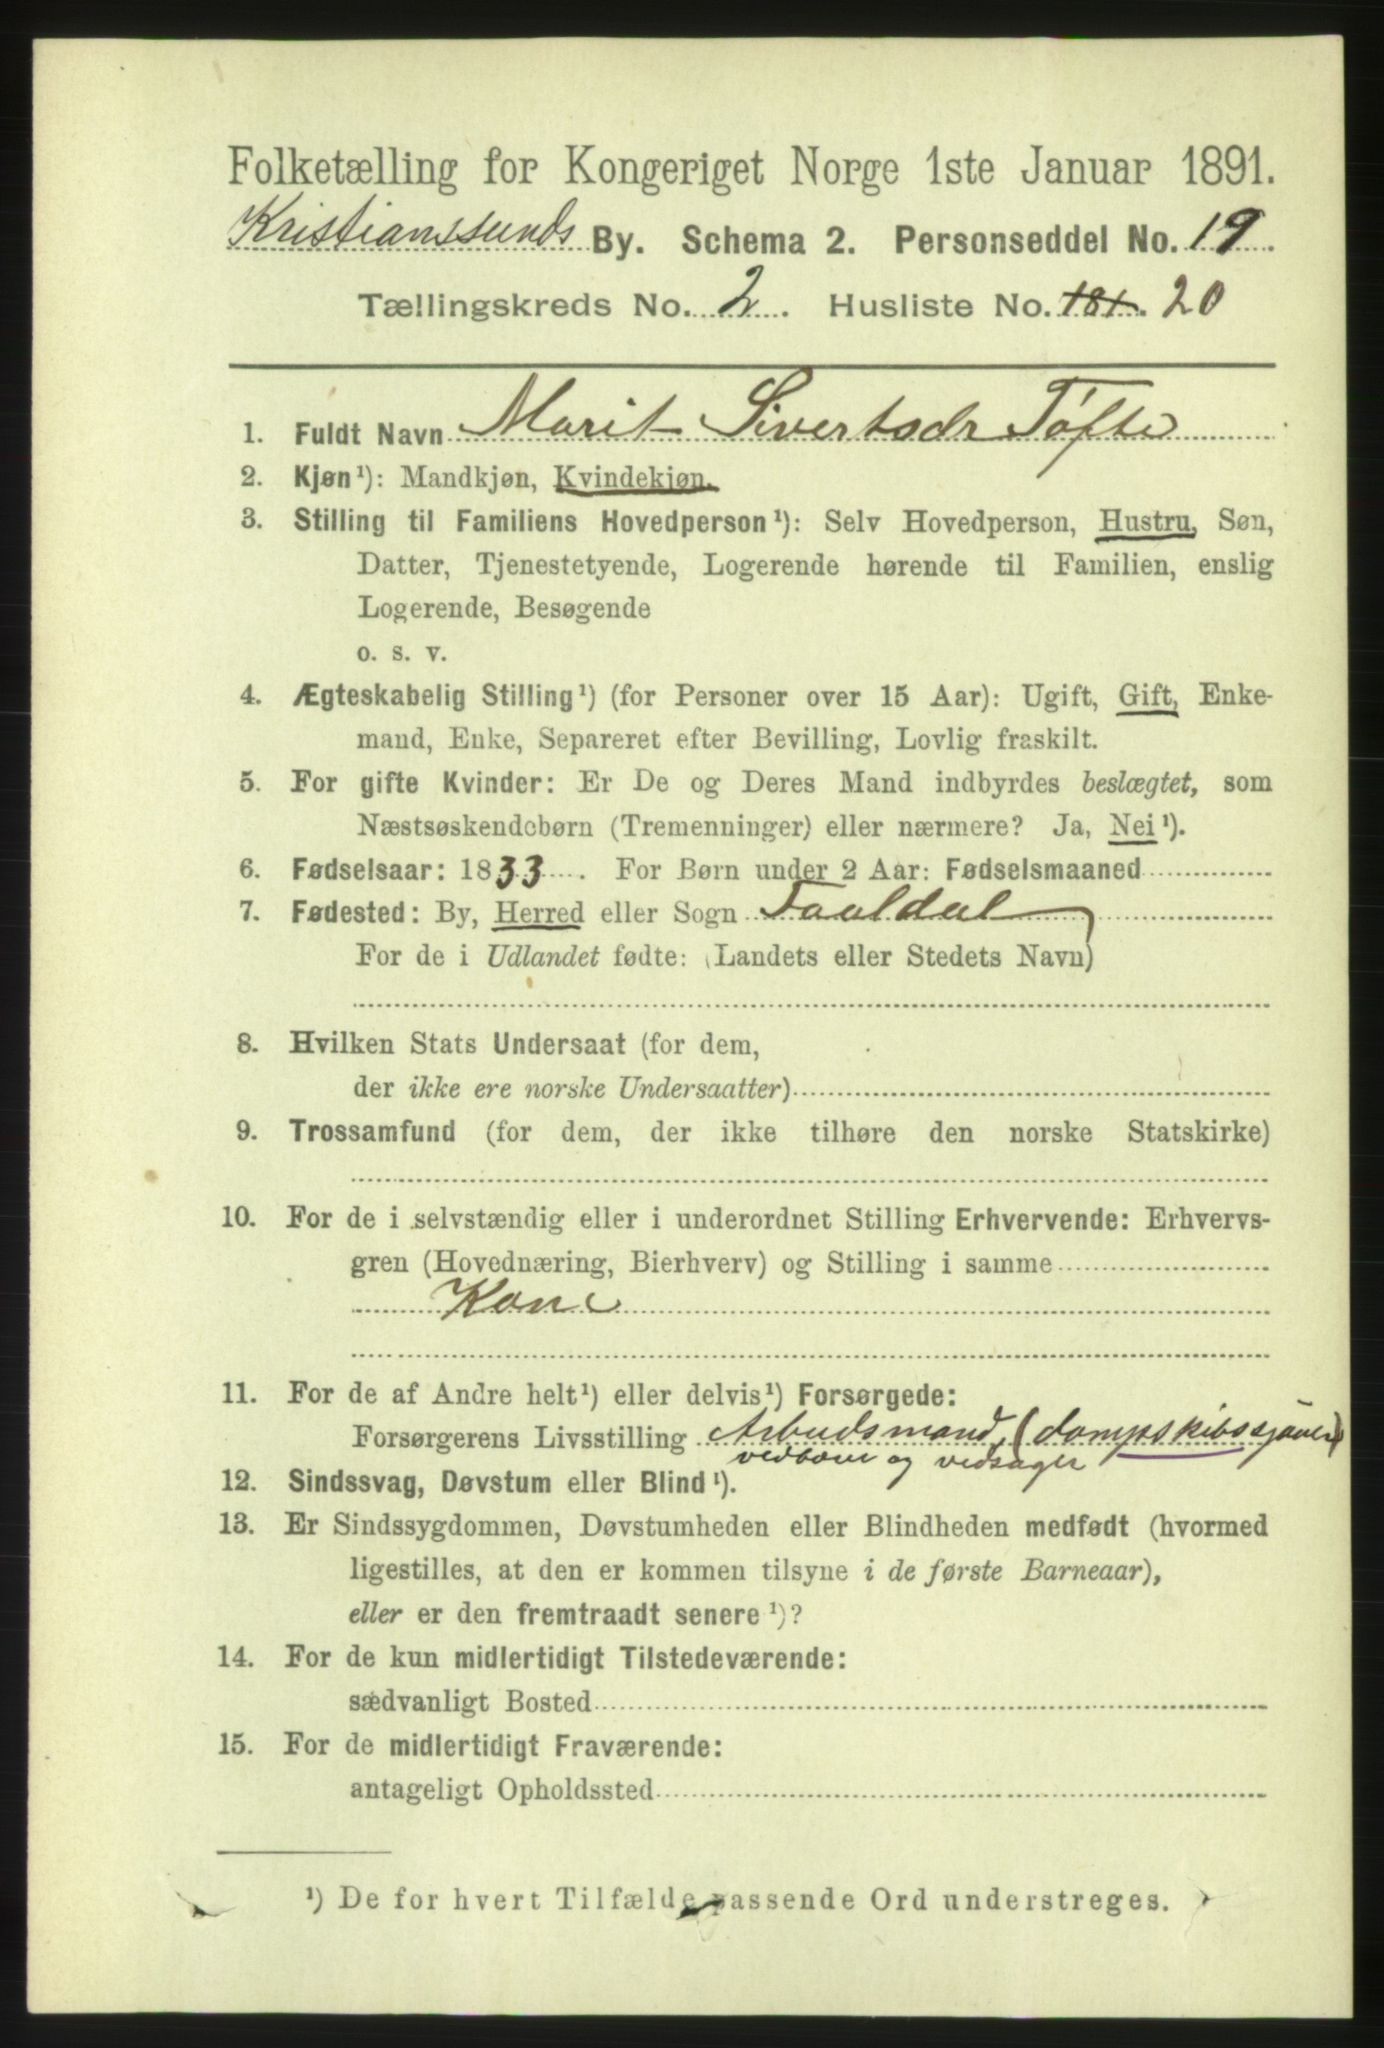 Folketælling for Kongeriget Norge 1ste Januar 1891.
Kristianssunds By. Schema 2. Personseddel No. 19.
Tællingskreds No. 2. Husliste No. 181. 20
1. Fuldt Navn Marit Sivertsdr Tøfte
2. Kjøn¹): Mandkjøn, Kvindekjøn.
3. Stilling til Familiens Hovedperson¹): Selv Hovedperson, Hustru, Søn,
Datter, Tjenestetyende, Logerende hørende til Familien, enslig
Logerende, Besøgende
o. s. v.
4. Ægteskabelig Stilling¹) (for Personer over 15 Aar): Ugift, Gift, Enke-
mand, Enke, Separeret efter Bevilling, Lovlig fraskilt.
5. For gifte Kvinder: Er De og Deres Mand indbyrdes beslægtet, som
Næstsøskendebørn (Tremenninger) eller nærmere? Ja, Nei¹).
6. Fødselsaar: 1833. For Børn under 2 Aar: Fødselsmaaned
7. Fødested: By, Herred eller Sogn
For de i Udlandet fødte: (Landets eller Stedets Navn)
8. Hvilken Stats Undersaat (for dem,
der ikke ere norske Undersaatter)
9. Trossamfund (for dem, der ikke tilhøre den norske Statskirke)
10. For de i selvstændig eller i underordnet Stilling Erhvervende: Erhvervs-
gren (Hovednæring, Bierhverv) og Stilling i samme
Kone
11. For de af Andre helt¹) eller delvis¹) Forsørgede:
Forsørgerens Livsstilling Arbeidsmand, (dampskibssjauer)
og vedsager
12. Sindssvag, Døvstum eller Blind¹).
13. Er Sindssygdommen, Døvstumheden eller Blindheden medfødt (hvormed
ligestilles, at den er kommen tilsyne i de første Barneaar),
eller er den fremtraadt senere¹)?
14. For de kun midlertidigt Tilstedeværende:
sædvanligt Bosted
15. For de midlertidigt Fraværende:
antageligt Opholdssted
¹) De for hvert Tilfælde passende Ord understreges.